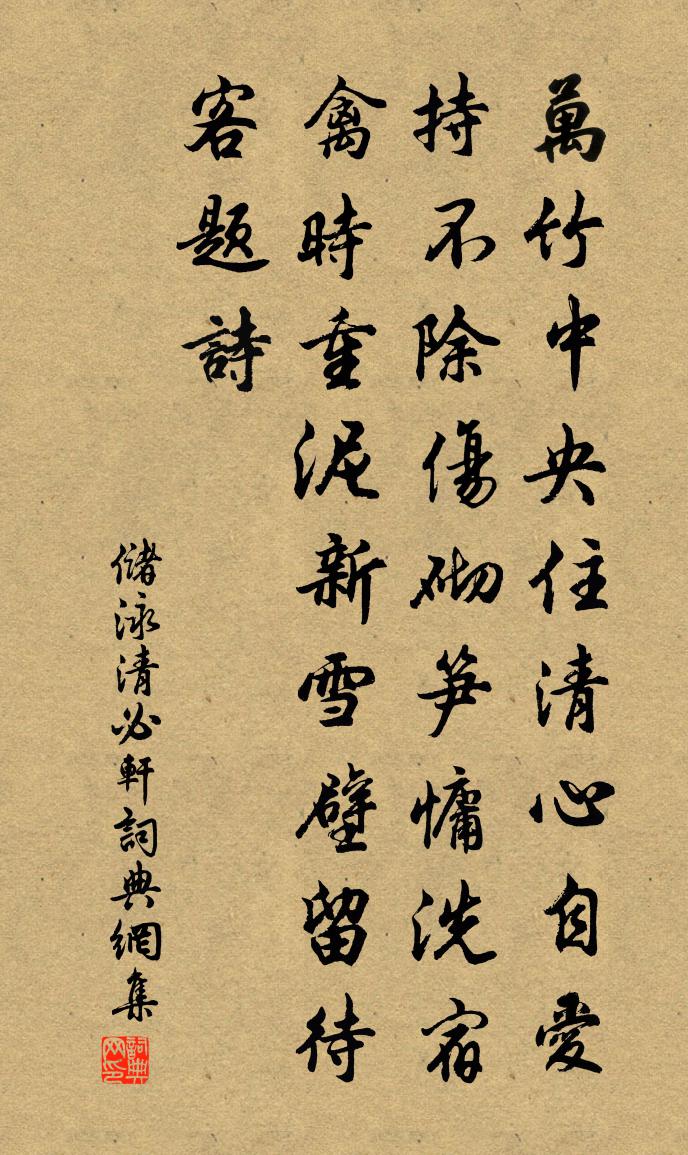 萬竹中央住清心自愛
持不除傷砌笋慵洗宿
禽時重泥新雪壁留待
客題詩
儲泳清必軒詞典網集
詞典网印